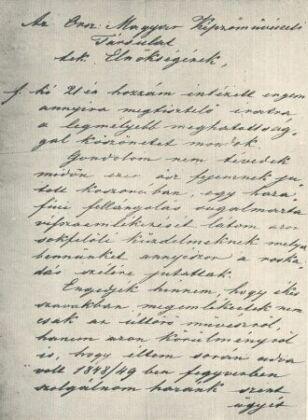 Az Orsz. Magyar Képzőművészeti
Társulat
tek. Elnökségének,
f. hó 21én hozzám intézett engem
annyira megtisztelő iratra
a legmélyebb meghatottság-
gal köszönetet mondok.
Gondolom nem tévedek
midőn ezen ősz fejemnek ju-
tott koszorúban, egy haza-
fiui fellángolás sugalmazta
visszaemlékezését látom azon
sokféle küzdelmeknek melyek
bennünket annyiszor a
szélére juttattak.
Engedjék hinnem, hogy élő
szavakban megemlékeztek nem
csak az úttörő művészről,
hanem azon körülményről
is, hogy éltem során
volt 1848/49 ben fegyverben
szolgálnom hazánk szent
ügyét